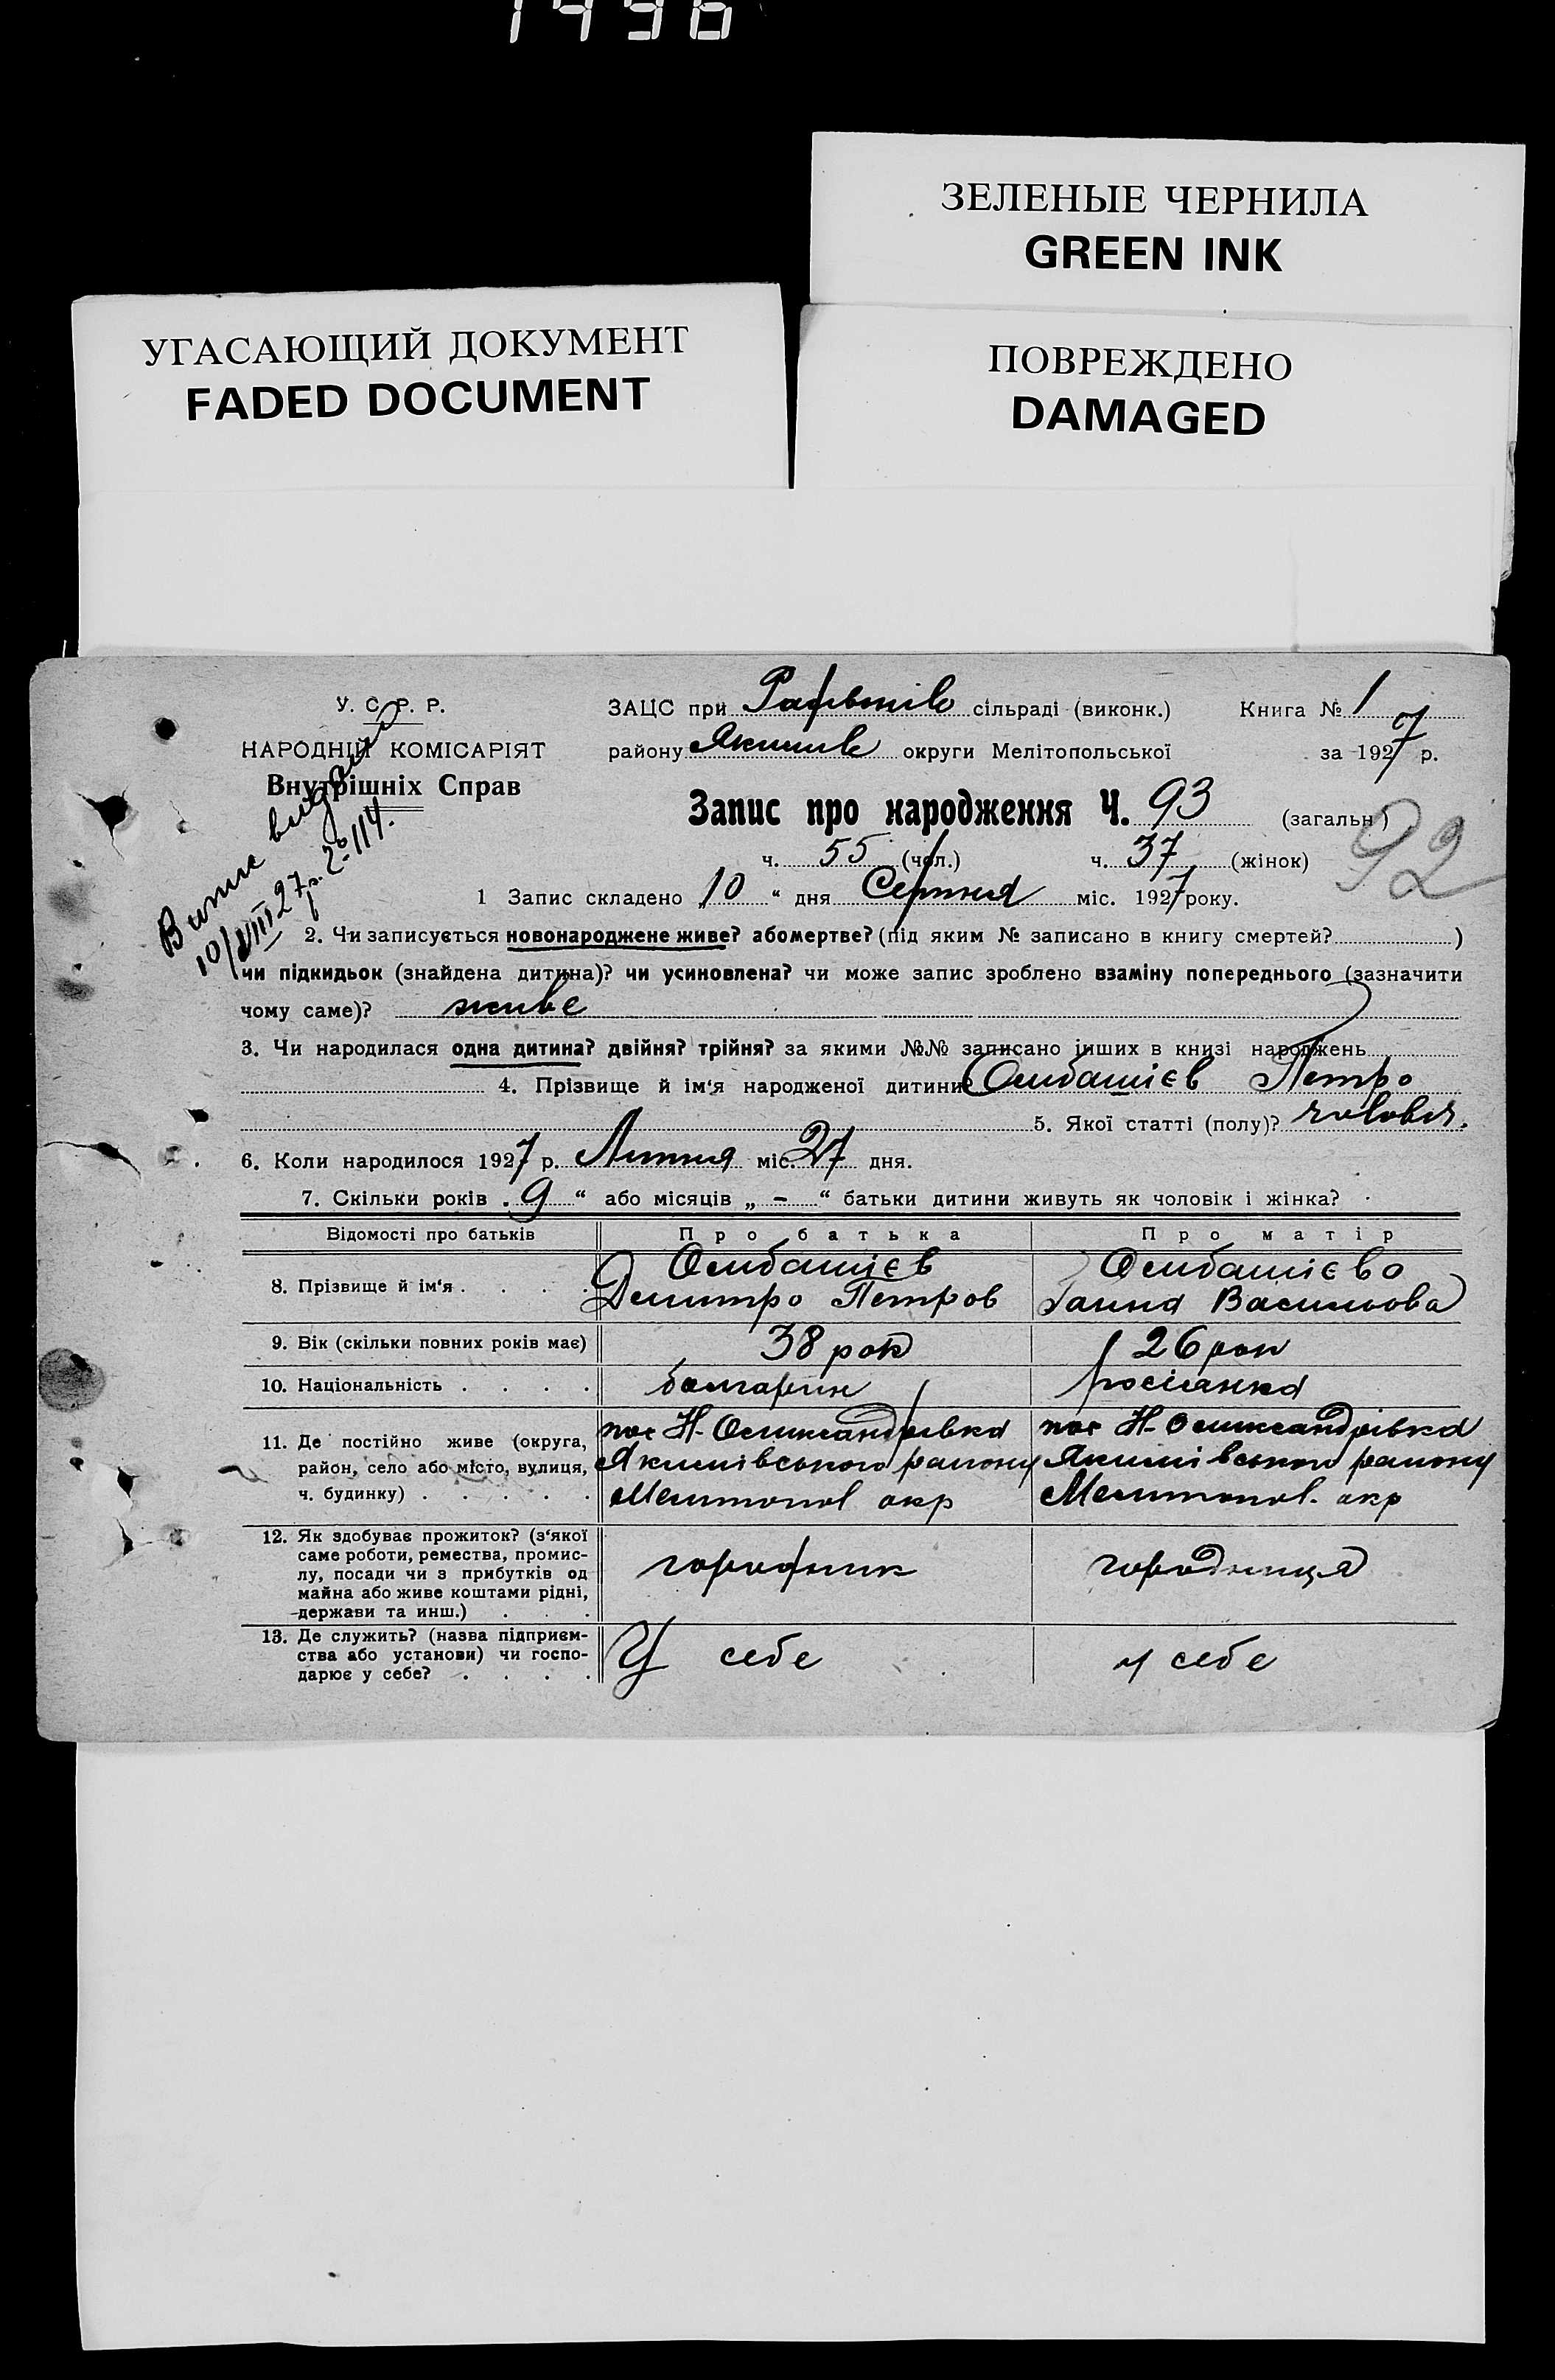 1496
ЗЕЛЕНЫЕ ЧЕРНИЛА
GREEN INK
УГАСАЮЩИЙ ДОКУМЕНТ
FADED DOCUMENT
ПОВРЕЖДЕНО
DAMAGED
У. С. Р. Р.
НАРОДНІЙ КОМІСАРІЯТ
Внутрішніх Справ
Випис видано
10/VIII 27 р. № 114.
ЗАЦС при сільраді (виконк.) Книга № 1
району Якимів округи Мелітопольської за 1927 р.
Запис про народження Ч. 93 (загальн.)
92
ч. 55 (чол.) ч. 37 (жінок)
1 Запис складено „10 “ дня Серпня міс. 1927 року.
2. Чи записується новонароджене живе? або мертве? (під яким № записано в книгу смертей? )
чи підкидьок (знайдена дитина)? чи усиновлена? чи може запис зроблено взаміну попереднього (зазначити
чому саме)? живе
3. Чи народилася одна дитина? двійня? трійня? за якими №№ записано інших в книзі народжень
4. Прізвище й ім‘я народженої дитини? Олибашієв Петро
5. Якої статті (полу)? чоловіч.
6. Коли народилося 1927 р. Липня міс. 27 дня.
7. Скільки років „ 9 “ або місяців „ – “ батьки дитини живуть як чоловік і жінка?
Відомості про батьків Про батька Про матір
8. Прізвище й ім‘я . . . . Олибашієв Димитро Петров Олибашієво Ганна Васильова
9. Вік (скільки повних років має) 38 рок 26 рок
10. Національність . . . . болгарин росіянка
11. Де постійно живе (округа, пос Н-Олександрівка пос Н-Олександрівка
район, село або місто, вулиця, Якимівського району Якимівського району
ч. будинку) . . . . . Мелитопол окр Мелитопол. окр
12. Як здобуває прожиток? (з‘якої
саме роботи, ремества, промис-
лу, посади чи з прибутків од городник городниця
майна або живе коштами рідні,
держави та инш.) . . .
13. Де служить? (назва підприєм-
ства або установи) чи госпо- У себе у себе
дарює у себе? . . . .